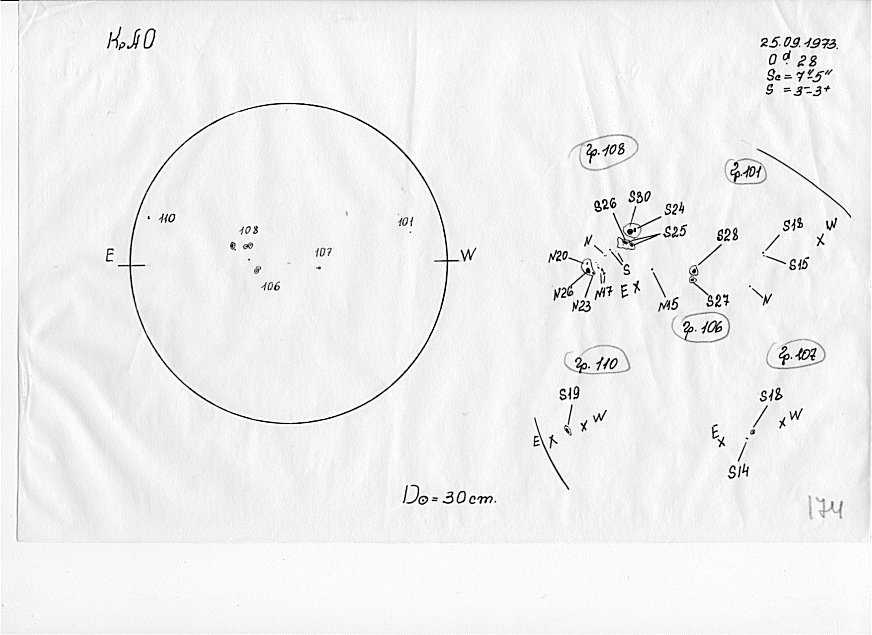 КрАО
25.09.1973.
0ᵈ 28
Sc = 7"-5"
S = 3⁻-3⁺
гр.108
гр.101
S26
S30
S24
S25
S28
S18
W
X
S15
N
N20
N26
N23
N17
S
E X
N15
S27
N
гр.106
110
108
101
107
106
E
W
гр.110
гр.107
S19
E X
X W
S18
E X
X W
S14
D⊙ = 30 cm.
174